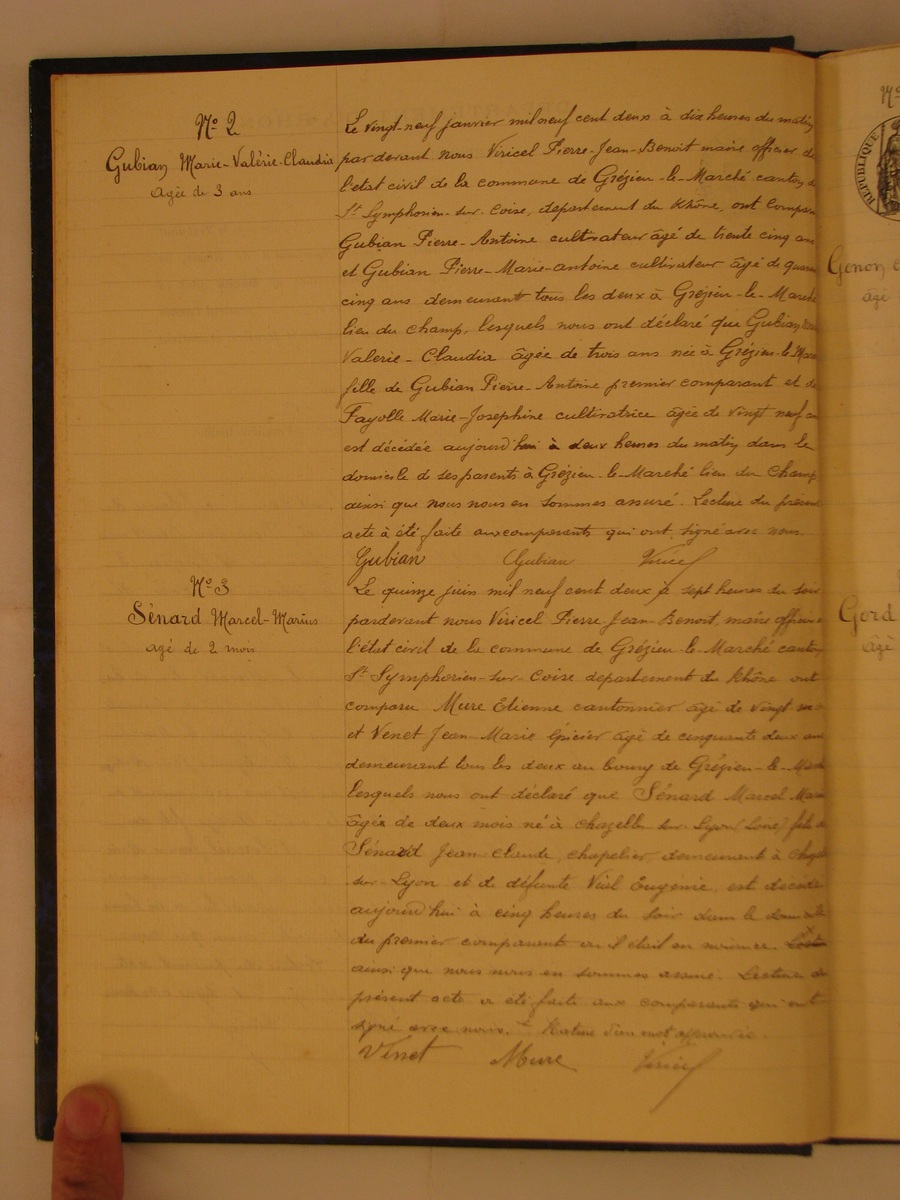 N° 2
Gubian Marie-Valérie-Claudia
Agée de 3 ans
Le vingt-neuf janvier mil neuf cent deux à dix heures du matin
par devant nous Viricel Pierre-Jean-Benoit maire officier de
l'état civil de la commune de Grézieu-le-Marché canton de
St Symphorien-sur-Coise, département du Rhône, ont compar
Gubian Pierre-Antoine cultivateur âgé de trente cinq ans
et Gubian Pierre-Marie-antoine cultivateur âgé de quaran
cinq ans demeurant tous les deux à Grézieu-le-Marché
lieu du champ, lesquels nous ont déclaré que Gubian
Valerie-Claudia âgée de trois ans née à Grézieu-le-Mar
fille de Gubian Pierre-Antoine premier comparant et de
Fayolle Marie-Josephine cultivatrice âgée de vingt neuf an
est décédée aujourd'hui à deux heures du matin dans le
domicile de ses parents à Grézieu-le-Marché lieu du Champ
ainsi que nous nous en sommes assuré. Lecture du présent
acte à été faite aux comparants qui ont signé avec nous.
Gubian Gubian Viricel
N° 3
Sénard Marcel-Marius
agé de 2 mois
Le quinze juin mil neuf cent deux à sept heures du soir
pardevant nous Viricel Pierre Jean-Benoit, maire officier
l'état civil de la commune de Grézieu-le-Marché canton
St Symphorien-sur-Coise departement du Rhône ont
comparu Mure Etienne cantonnier âgé de vingt
et Venet Jean-Marie épicier âgé de cinquante deux ans
demeurant tous les deux au bourg de Grézieu-le-Marché
lesquels nous ont déclaré que Sénard Marcel Mari
âgé de deux mois né à chazelle sur Lyon (Loire) fils de
Sénard Jean Claude, chapelier, demeurant à chaz
sur-Lyon et de défunte Vial Eugénie, est décédé
aujourd'hui à cinq heures du soir dans le domicile
du premier comparant ou il était en nourrice.
ainsi que nous nous en sommes assuré. Lecture du
présent acte a été faite aux comparants qui ont
signé avec nous. Rature d'un mot approuvée.
Venet Mure Viricel
N°
REPUBLIQUE
Genon
âgé
Gord
âgé